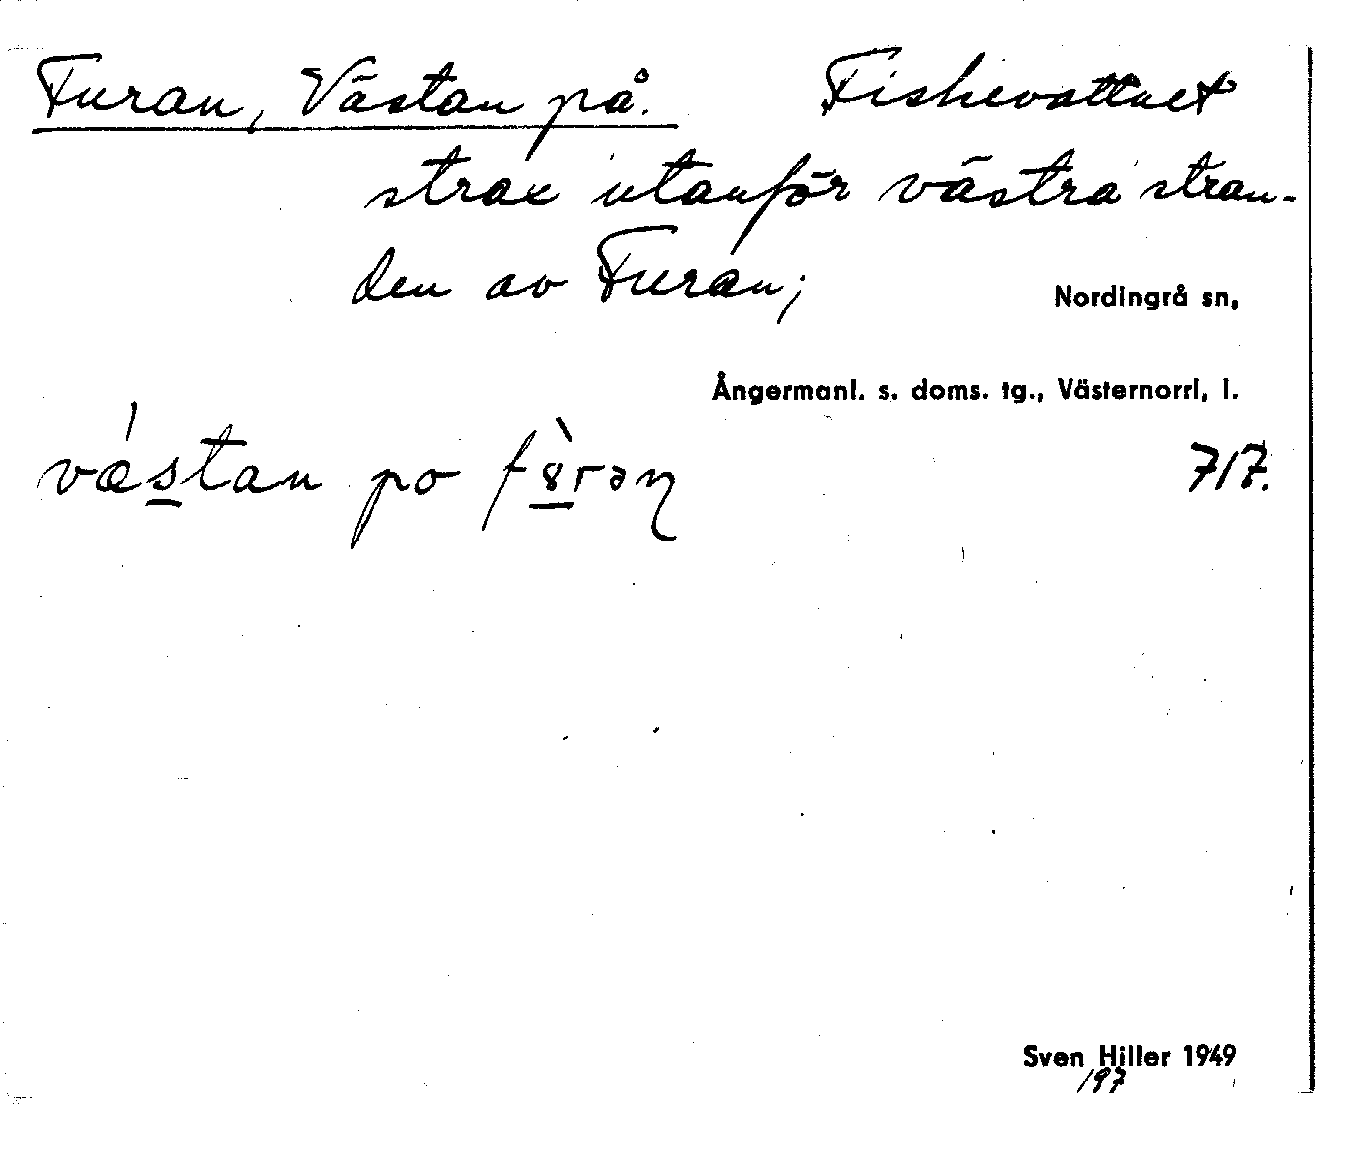 Furan, Västan på. Fiskevattnet
strax utanför västra stran-
den av Furan;
Nordingrå sn,
Ångermanl. s. doms. tg., Västernorrl, l.
væ̍s̲tan po f8̲̀rəɳ
717.
Sven Hiller 1949
197